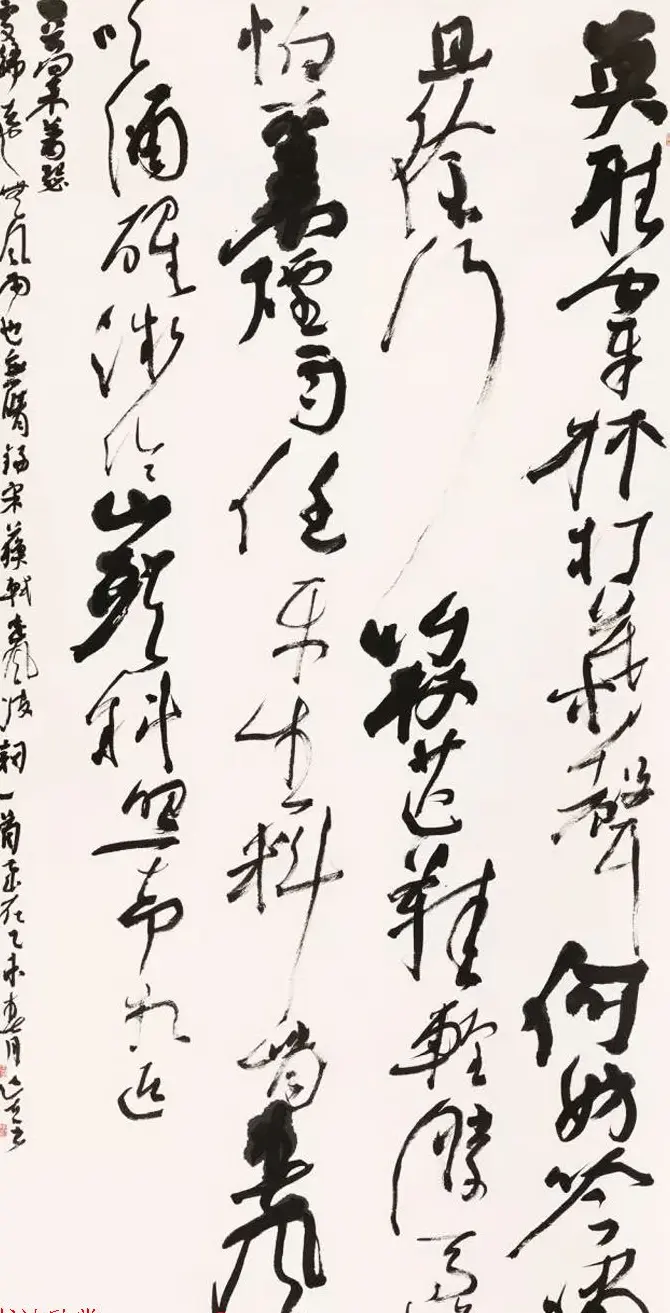 莫聽穿林打葉聲何妨吟嘯
且徐行竹杖芒鞋輕勝馬誰
怕一蓑煙雨任平生料峭春風
吹酒醒微冷山頭斜照却相迎
回首向來蕭瑟
處歸去也無風雨也無晴錄宋蘇軾定風波詞一首乙未春月書